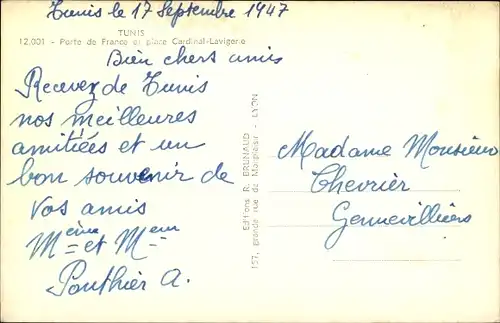 Tunis le 17 Septembre 1947
TUNIS
12.001 - Porte de France et place Cardinal-Lavigerie
Bien chers amis
Recevez de Tunis
nos meilleures
amitiées et un
bon souvenir de
vos amis
Meme et Meur
Ponthier A.
Editions R. BRUNAUD
157, grande rue de Monplaisir - LYON
Madame Monsieur
Chevrier
Gennevilliers